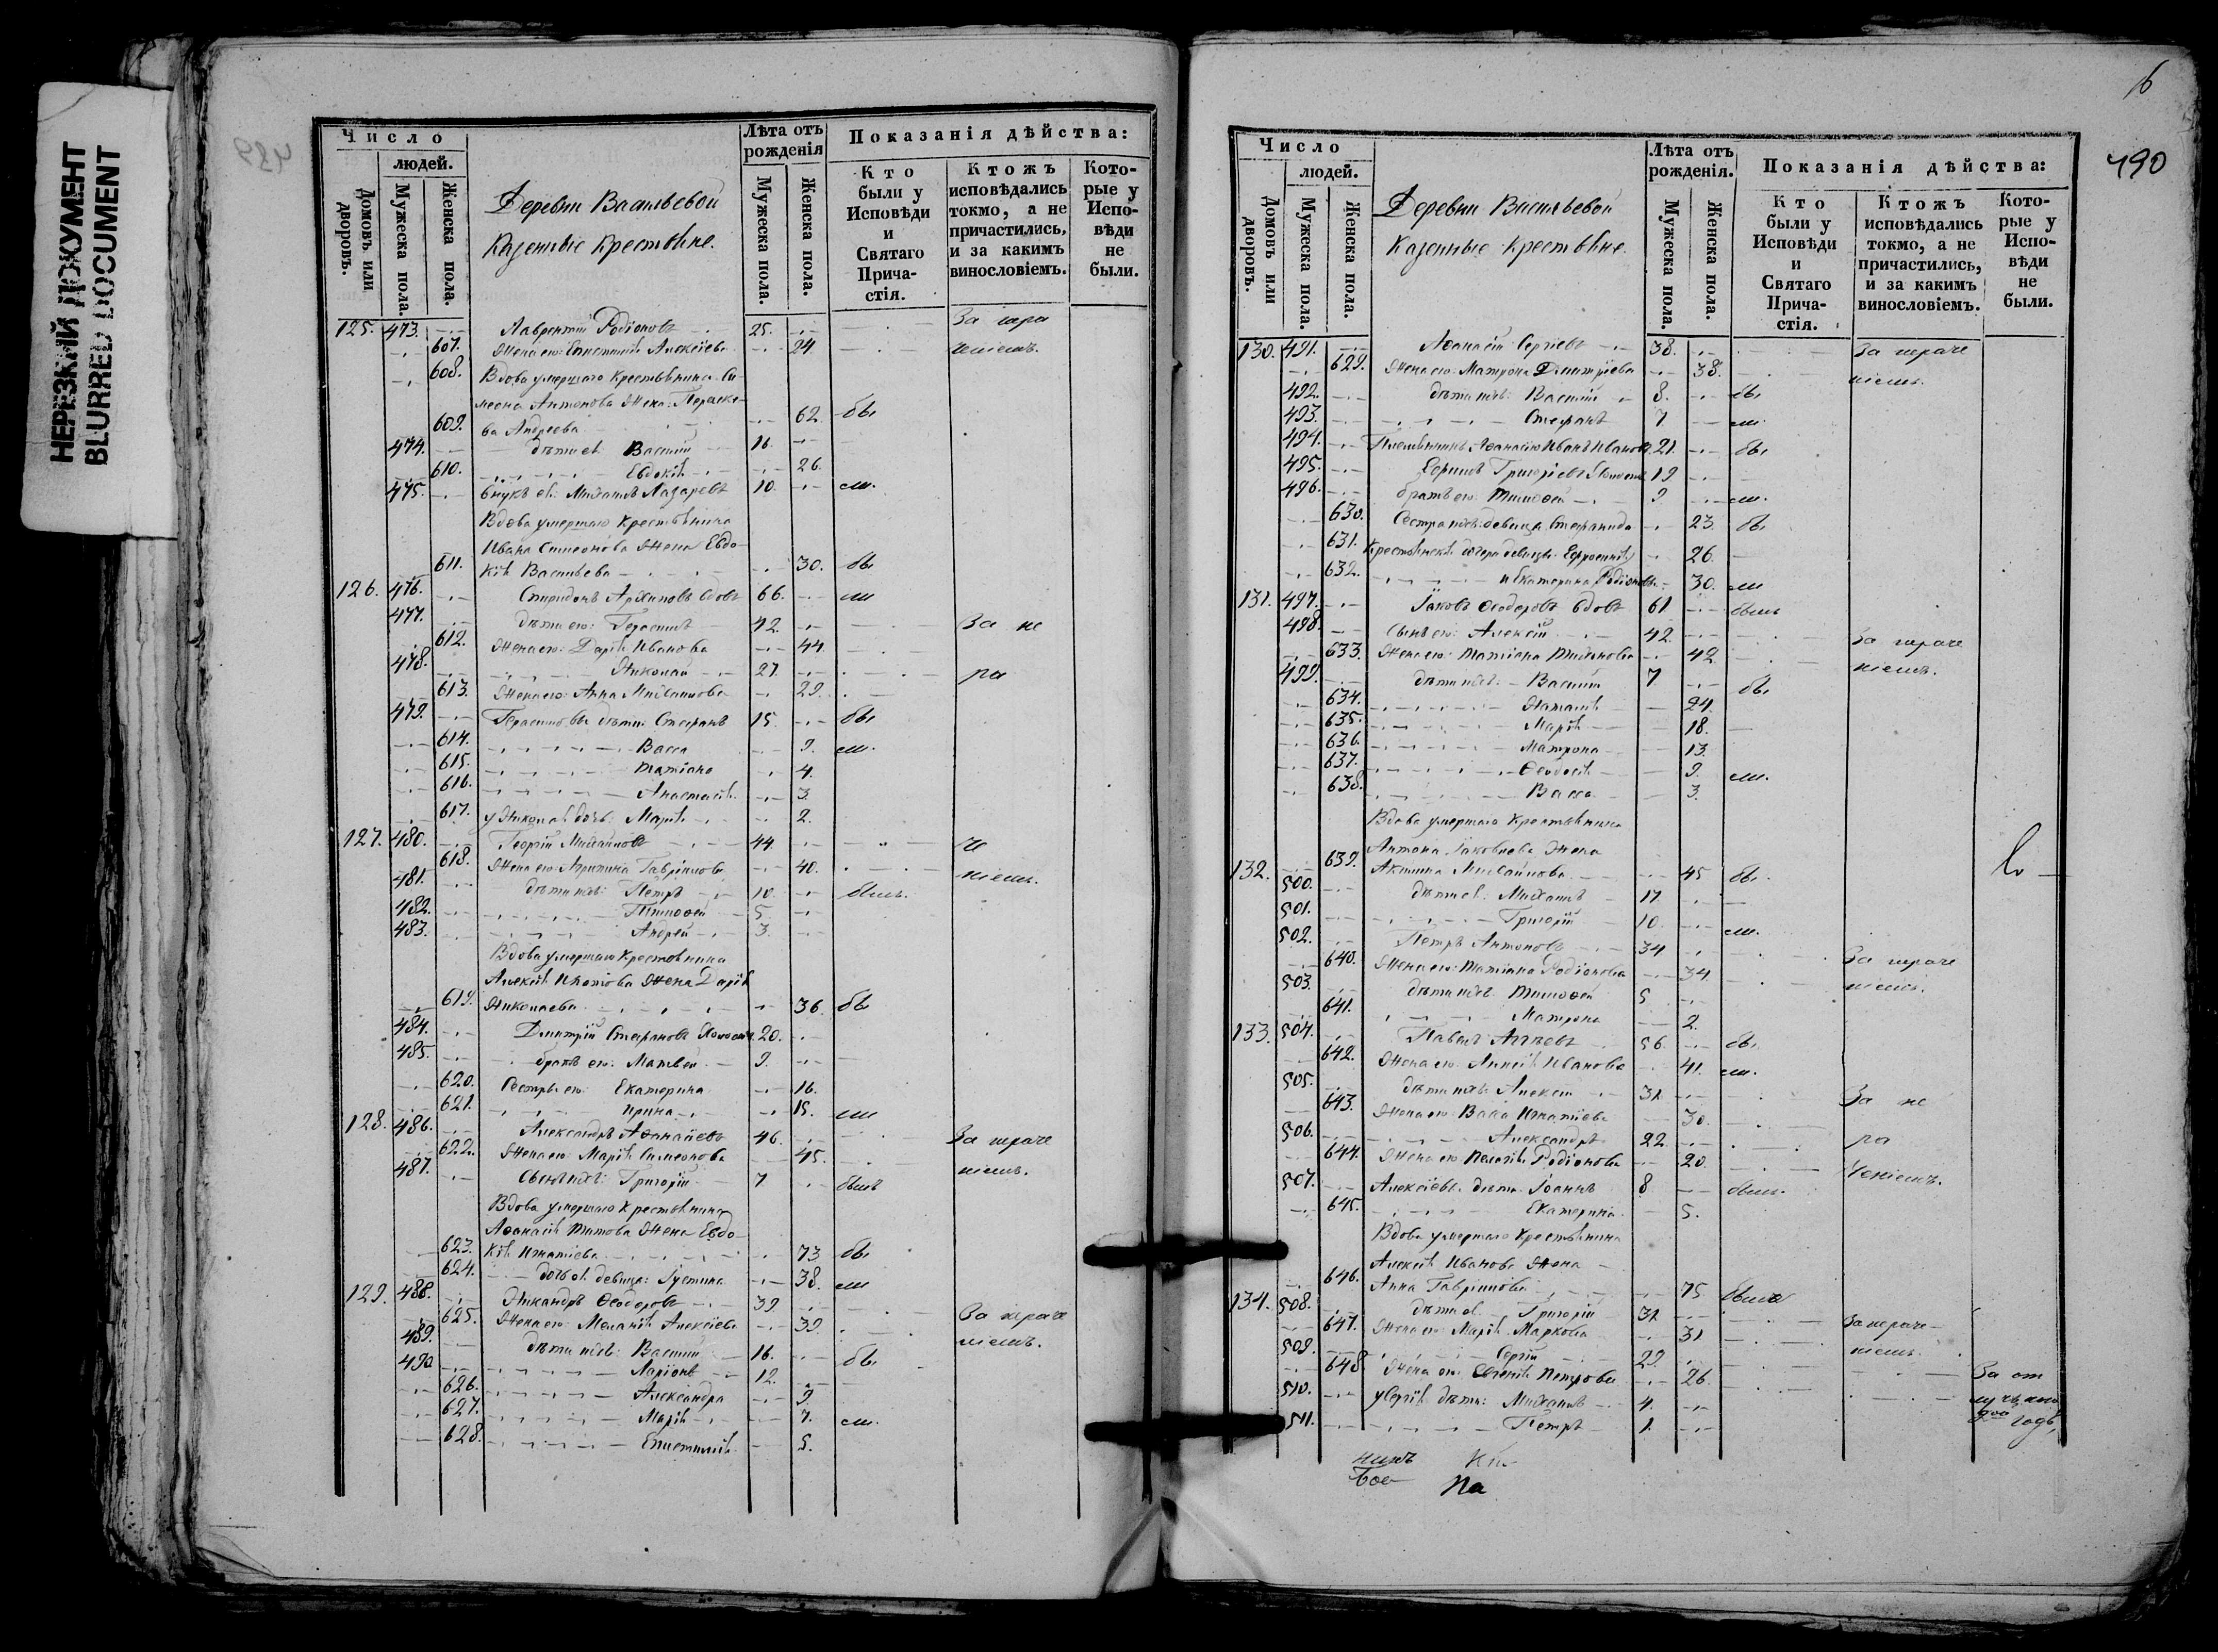 НЕРЕЗКИЙ ДОКУМЕНТ
BLURRED DOCUMENT
Число
людей.
Домовъ или дворовъ.
Мужеска пола.
Женска пола.
Деревни Васильевой
Казенные Крестьяне.
Лѣта отъ рожденія
Мужеска пола.
Женска пола.
Показанія дѣйства:
Кто были у Исповѣди и Святаго Прича-стія.
Ктожъ исповѣдались токмо, а не причастились, и за какимъ винословіемъ.
Кото-рые у Испо-вѣди не были.
125. 473. Лаврентій Родіоновъ 25. За тра
607. Жена его: Епистимія Алексіева 24 ченіемъ.
608. Вдова умершаго Крестьянина Си-
меона Антонова Жена: Параске-
609. ва Андреева 62. бы
474. дѣти ея: Василій 16.
610. Евдокія 26.
475. Внукъ ея: Михаилъ Лазаревъ 10. ли.
Вдова умершаго Крестьянина
Ивана Симеонова Жена Евдо-
611. кія Васильева 30. бы
126. 476. Спиридонъ Архиповъ вдовъ 66. ли
477. дѣти его: Герасимъ 42. За не
612. Жена его: Дарія Иванова 44.
478. Николай 27. ра
613. Жена его: Анна Михаилова 29.
479. Герасимовы дѣти: Стефанъ 15. бы
614. Васса 9. ли.
615. Татіана 4.
616. Анастасія 3.
617. у Николая дочь: Марія 2.
127. 480. Георгій Михайловъ 44. че
618. Жена его: Агрипина Гавріилова 40. ніемъ.
481. дѣти ихъ: Петръ 10. былъ.
482. Тимофей 5.
483. Андрей 3.
Вдова умершаго Крестьянина
Алексія Ипатова Жена Дарія
619. Николаева 36. бы
484. Димитрій Стефановъ Холостъ 20.
485. братъ его: Матвей 9.
620. Сестры его: Екатерина 16.
621. Ирина 15. ли
128. 486. Александръ Афанасіевъ 46. За траче
622. Жена его: Марія Симеонова 45. ніемъ.
487. Сынъ ихъ: Григорій 7 былъ
Вдова умершаго Крестьянина
Афанасія Титова Жена Евдо-
623. кія Игнатіева 73 бы
624. дочь ея девица: Іустина 38. ли
129. 488. Никандръ Феодоровъ 39. За нераче
625. Жена его: Меланія Алексіева 39. ніемъ.
489. дѣти ихъ: Василій 16. бы
490 Ларіонъ 12.
626. Александра 9.
627. Марія 7. ли.
628. Епистимія 5.
6
490
Число
людей.
Домовъ или дворовъ.
Мужеска пола.
Женска пола.
Деревни Васильевой
Казенные Крестьяне.
Лѣта отъ рожденія.
Мужеска пола.
Женска пола.
Показанія дѣйства:
Кто были у Исповѣди и Святаго Прича-стія.
Ктожъ исповѣдались токмо, а не причастились, и за какимъ винословіемъ.
Кото-рые у Испо-вѣди не были.
130. 491. Афанасій Сергіевъ 38. За нераче
629. Жена его: Матрона Димитріева 38. ніемъ.
492. дѣти ихъ: Василій 8. бы
493. Стефанъ 7 ли.
494. Племянникъ Афанасію Иванъ Ивановъ 21. бы
495. Ефимъ Григоріевъ Холостъ 19
496. братъ его: Тимофей 9 ли.
630. Сестра ихъ: девица Стефанида 23. бы
631. Крестьянскія дочери девицы: Ефросинія 26.
632. и Екатерина Родіоновы 30. ли
131. 497. Іаковъ Феодоровъ вдовъ 61 былъ
498. Сынъ его: Алексій 42. За нераче
633. Жена его: Татіана Тихонова 42 ніемъ.
499. дѣти ихъ: Василій 7. бы
634. Наталія 24.
635. Марія 18.
636. Матрона 13.
637. Феодосія 9. ли.
638. Васса 3.
Вдова умершаго Крестьянина
Антона Іаковлева Жена
132. 639. Акилина Михайлова 45 бы
500. дѣти ея: Михаилъ 17
501. Григорій 10. ли.
502. Петръ Антоновъ 34 За нераче
640. Жена его: Татіана Родіонова 34. ніемъ.
503. дѣти ихъ: Тимофей 5
641. Матрона 2.
133. 504. Павелъ Агѣевъ 56. бы.
642. Жена его: Анисія Иванова 41. ли.
505. дѣти ихъ: Алексій 31 За не
643. Жена его: Васса Игнатіева 30.
506. Александръ 22. ра
644. Жена его: Пелагія Родіонова 20. ченіемъ.
507. Алексіевы дѣти: Іоаннъ 8 былъ.
645. Екатерина 5.
Вдова умершаго Крестьянина
Алексія Иванова Жена
646. Анна Гавріилова 75 была
134. 508. дѣти ея: Григорій 31 За нераче-
647. Жена его: Марія Маркова 31 ніемъ.
509. Сергій 29.
648 Жена его: Евгенія Петрова 26. За от
510. у Сергія дѣти: Михаилъ 4. лучкою
511. Петръ 1. годъ
на